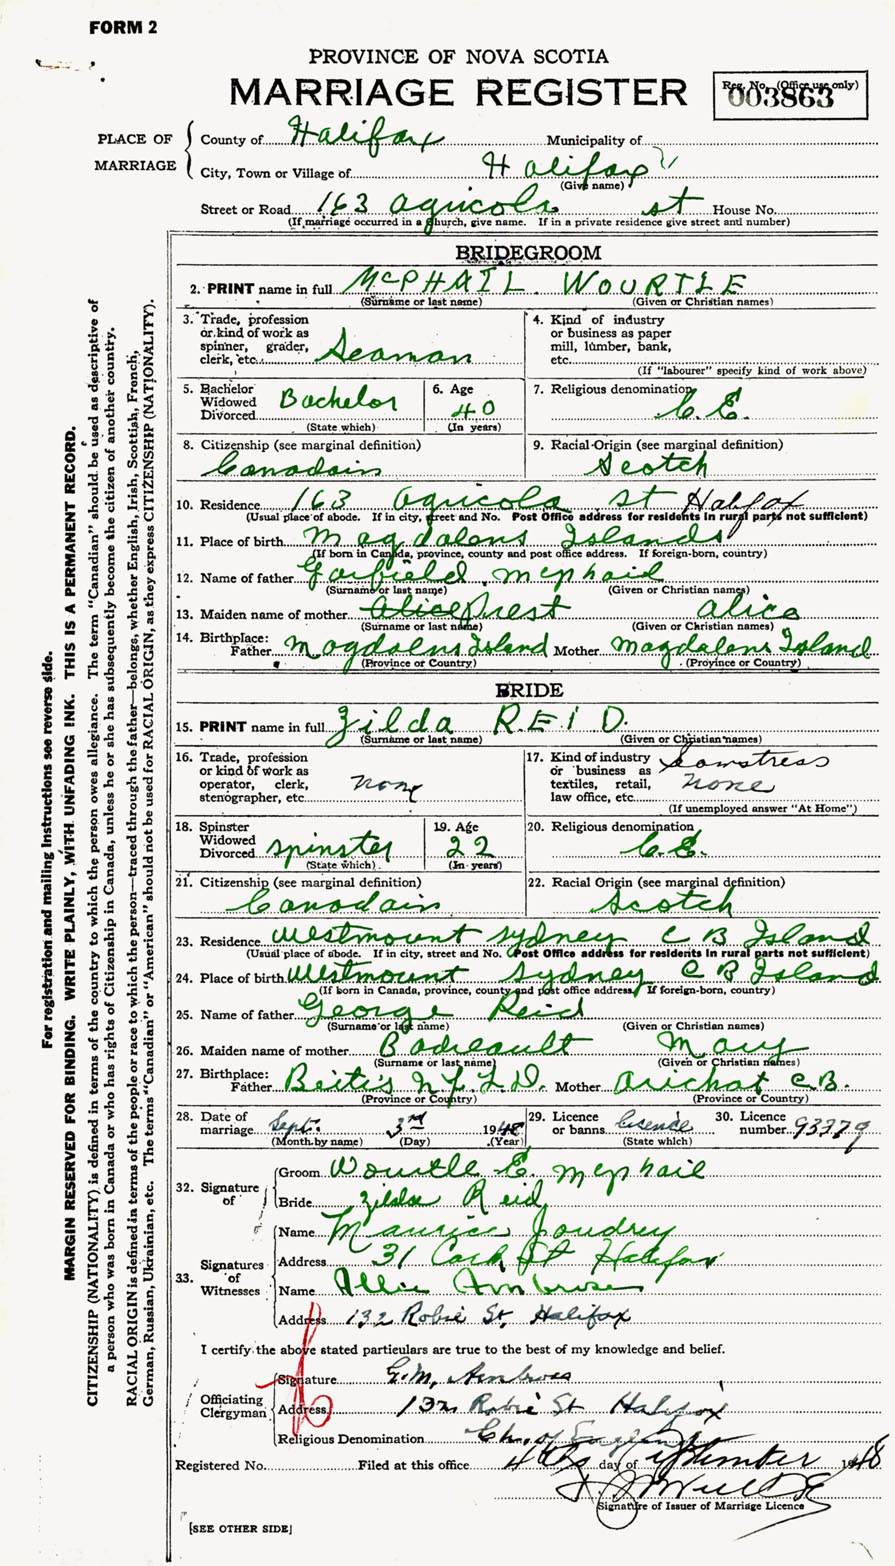 FORM 2
PROVINCE OF NOVA SCOTIA
MARRIAGE REGISTER
Reg. No. (Office use only)
003863
PLACE OF MARRIAGE
County of Halifax Municipality of
City, Town or Village of Halifax
(Give name)
Street or Road 163 Agricola st House No.
(If marriage occurred in a church, give name. If in a private residence give street and number)
BRIDEGROOM
2. PRINT name in full McPHAIL WOURTLE
(Surname or last name) (Given or Christian names)
3. Trade, profession or kind of work as spinner, grader, clerk, etc. Seaman
4. Kind of industry or business as paper mill, lumber, bank, etc.
(If "labourer" specify kind of work above)
5. Bachelor Widowed Divorced Bachelor
(State which)
6. Age 40
(In years)
7. Religious denomination C.E.
8. Citizenship (see marginal definition)
Canadain
9. Racial Origin (see marginal definition)
Scotch
10. Residence 163 Agricola st Halifax
(Usual place of abode. If in city, street and No. Post Office address for residents in rural parts not sufficient)
11. Place of birth Magdalens Islands
(If born in Canada, province, county and post office address. If foreign-born, country)
12. Name of father Garfield Mcphaid
(Surname or last name) (Given or Christian names)
13. Maiden name of mother Alice Prest Alice
(Surname or last name) (Given or Christian names)
14. Birthplace:
Father Magdalens Island Mother Magdalens Island
(Province or Country) (Province or Country)
BRIDE
15. PRINT name in full Zilda REID.
(Surname or last name) (Given or Christian names)
16. Trade, profession or kind of work as operator, clerk, stenographer, etc. none
17. Kind of industry or business as textiles, retail, law office, etc. Seamstress none
(If unemployed answer "At Home")
18. Spinster Widowed Divorced spinster
(State which)
19. Age 22
(In years)
20. Religious denomination C.E.
21. Citizenship (see marginal definition)
Canadain
22. Racial Origin (see marginal definition)
Scotch
23. Residence Westmount Sydney C B Island
(Usual place of abode. If in city, street and No. Post Office address for residents in rural parts not sufficient)
24. Place of birth Westmount Sydney C B Island
(If born in Canada, province, county and post office address. If foreign-born, country)
25. Name of father George Reid
(Surname or last name) (Given or Christian names)
26. Maiden name of mother Badreault Mary
(Surname or last name) (Given or Christian names)
27. Birthplace:
Father N.F.L.D. Mother Arichat C.B.
(Province or Country) (Province or Country)
28. Date of marriage Sept. 3rd 1948
(Month by name) (Day) (Year)
29. Licence or banns licence
(State which)
30. Licence number 93379
32. Signature of
Groom Wourtle E. Mcphail
Bride Zilda Reid
33. Signatures of Witnesses
Name Maurice Joudrey
Address 31 St Halifax
Name Allie Ambrose
Address 132 Robie St. Halifax
I certify the above stated particulars are true to the best of my knowledge and belief.
Officiating Clergyman
Signature G.M. Ambrose
Address 132 Robie St Halifax
Religious Denomination Ch. of England
Registered No. Filed at this office 4th day of September 1948
Signature of Issuer of Marriage Licence
[SEE OTHER SIDE]
For registration and mailing instructions see reverse side.
MARGIN RESERVED FOR BINDING. WRITE PLAINLY, WITH UNFADING INK. THIS IS A PERMANENT RECORD.
CITIZENSHIP (NATIONALITY) is defined in terms of the country to which the person owes allegiance. The term "Canadian" should be used as descriptive of
a person who was born in Canada or who has rights of Citizenship in Canada, unless he or she has subsequently become the citizen of another country.
RACIAL ORIGIN is defined in terms of the people or race to which the person—traced through the father—belongs, whether English, Irish, Scottish, French,
German, Russian, Ukrainian, etc. The terms "Canadian" or "American" should not be used for RACIAL ORIGIN, as they express CITIZENSHIP (NATIONALITY).